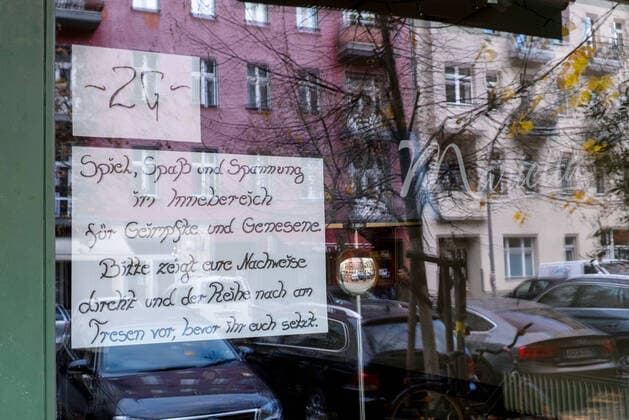 ~2G~
Spiel, Spaß und Spannung
im Innebereich
für Geimpfte und Genesene.
Bitte zeigt eure Nachweise
direkt und der Reihe nach am
Tresen vor, bevor ihr euch setzt.